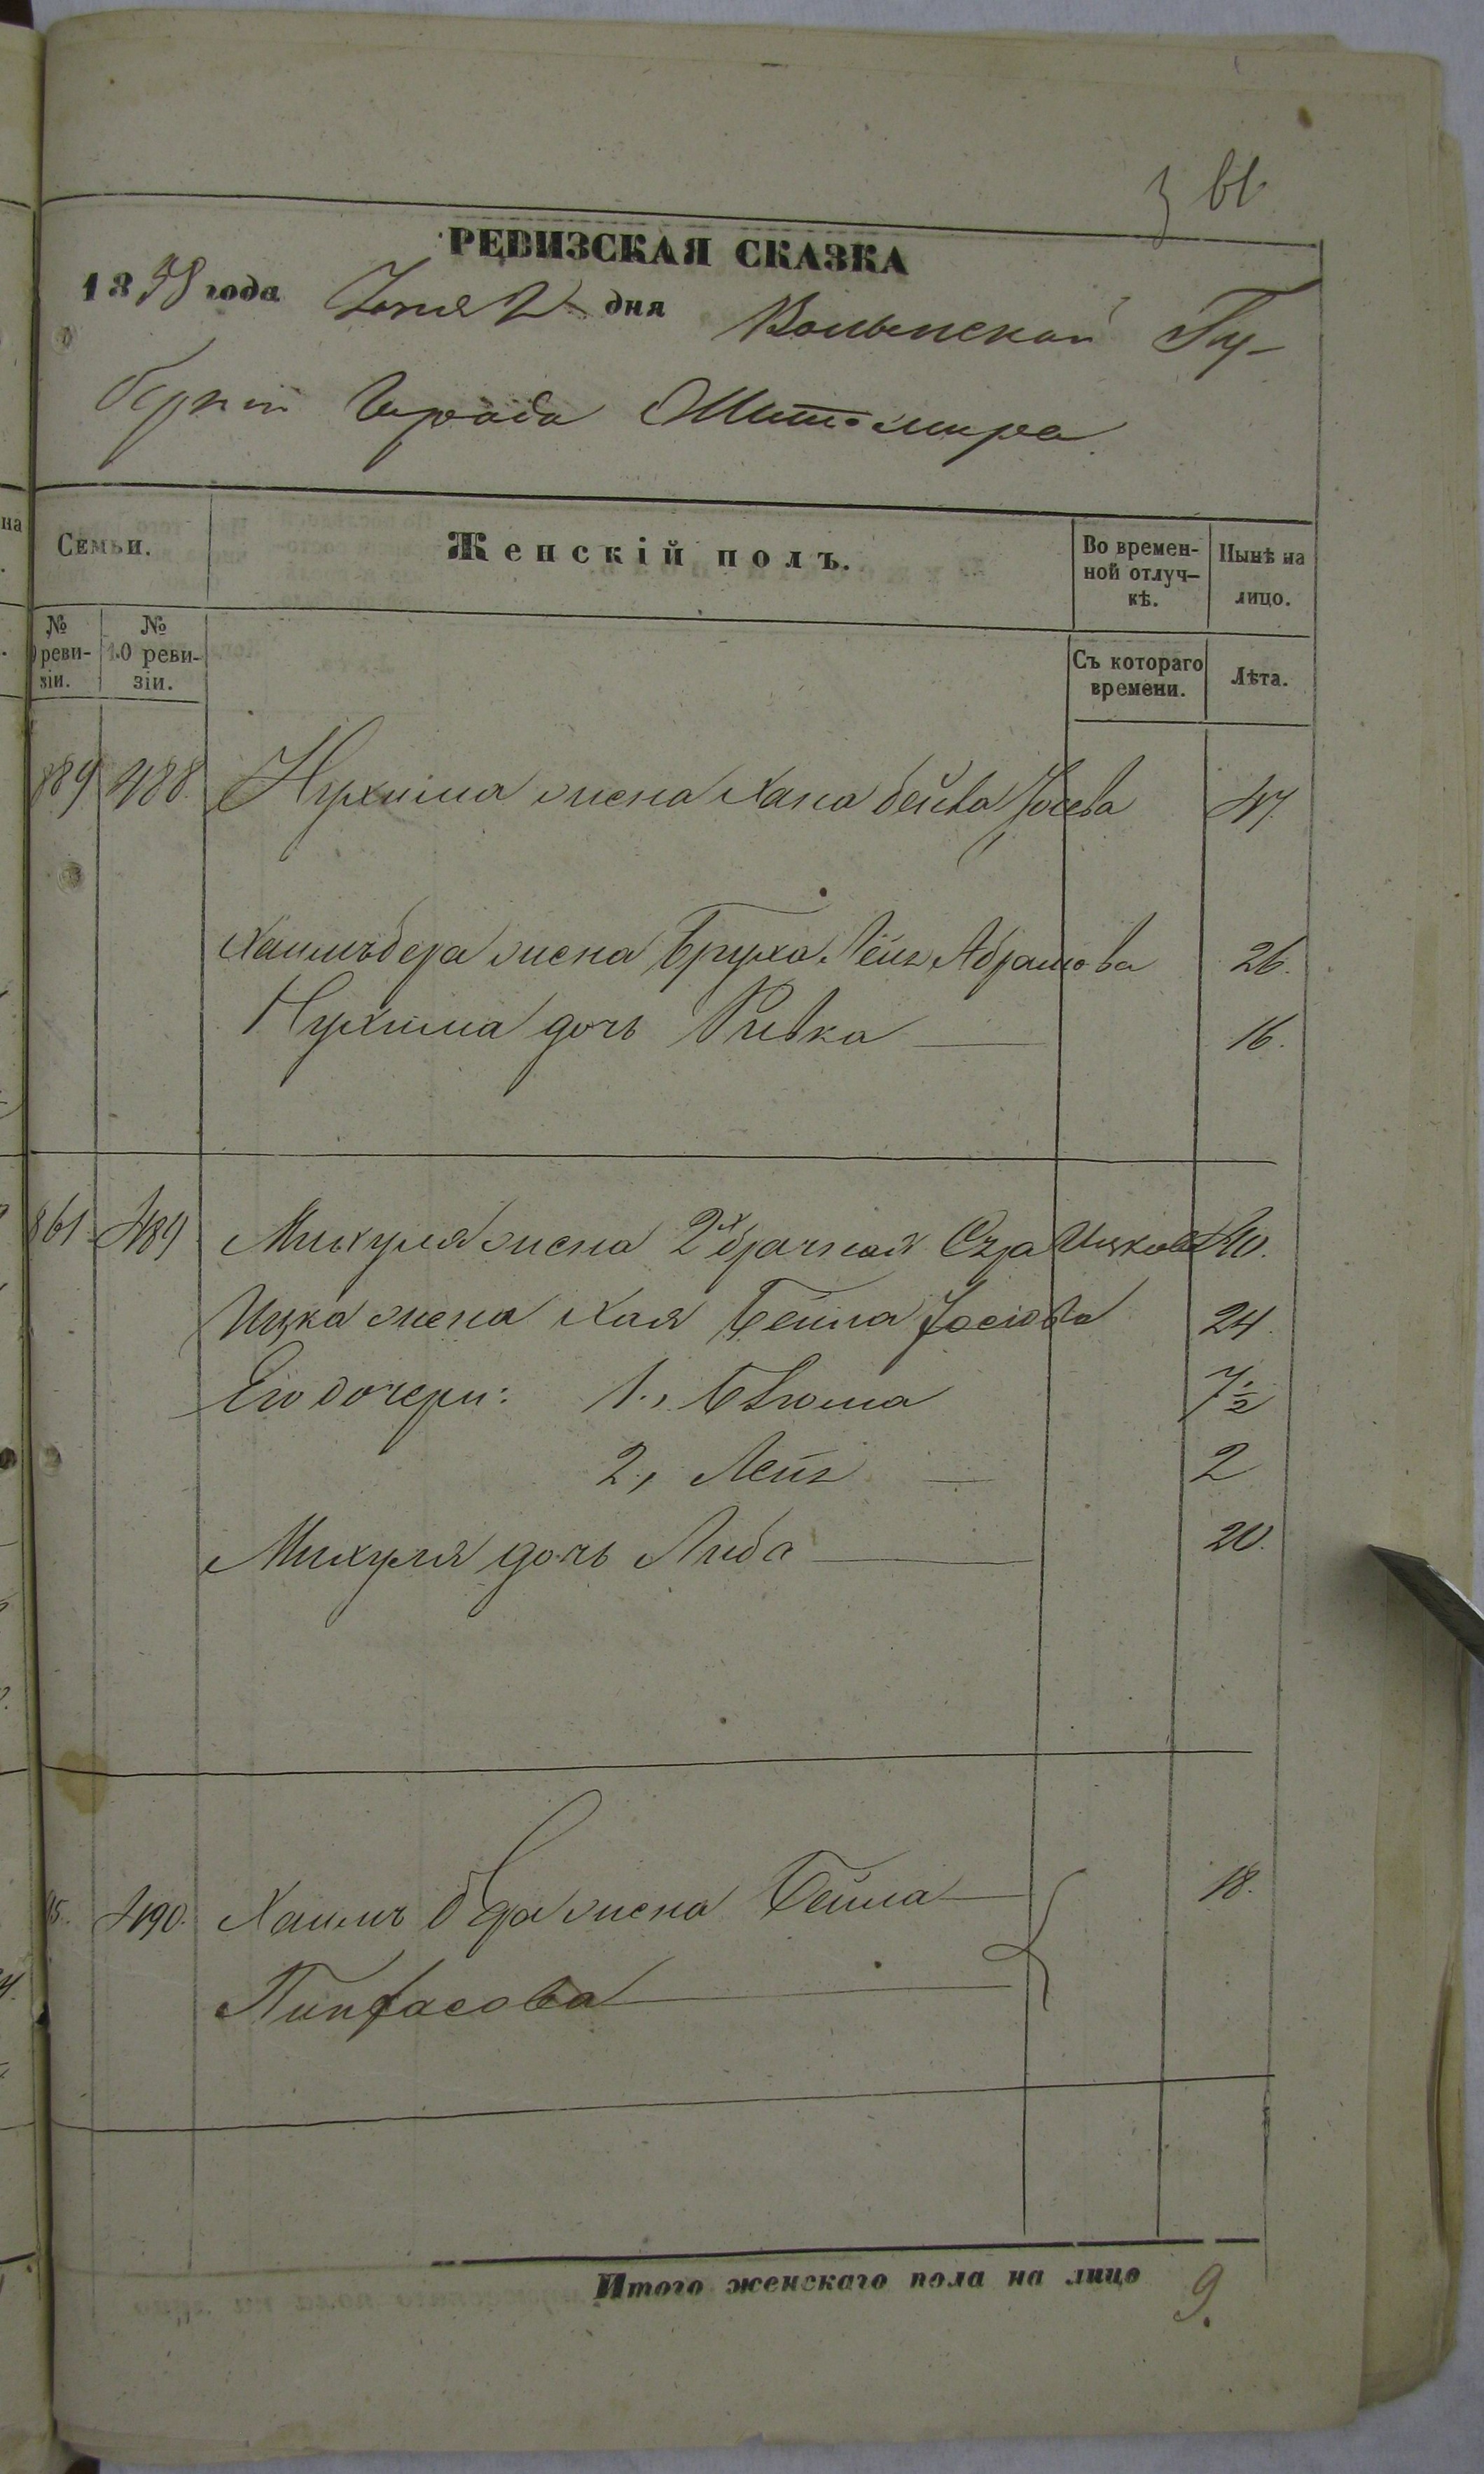 РЕВИЗСКАЯ СКАЗКА
1858 года Іюня 2 дня Волынской Гу-
берніи Города Житомира
Семьи.
Женскій полъ.
Во времен-
ной отлуч-
кѣ.
Нынѣ на
лицо.
№
реви-
зіи.
№
10 реви-
зіи.
Съ котораго
времени.
Лѣта.
488 Нухима жена Хана бейла 47
Хаимъ бера жена Бруха Лея Абрамова 26.
Нухима дочь Ривка 16.
861 489 Михуля жена 2х брачная Ицкова 40.
Ицка жена Хая Бейла Іосіова 24.
Его дочери: 1., 7 1/2
2, Лея 2
Михуля дочь Либа 20.
490. Хаимъ бера жена Бейла 18.
Пинхасова
Итого женскаго пола на лицо 9.